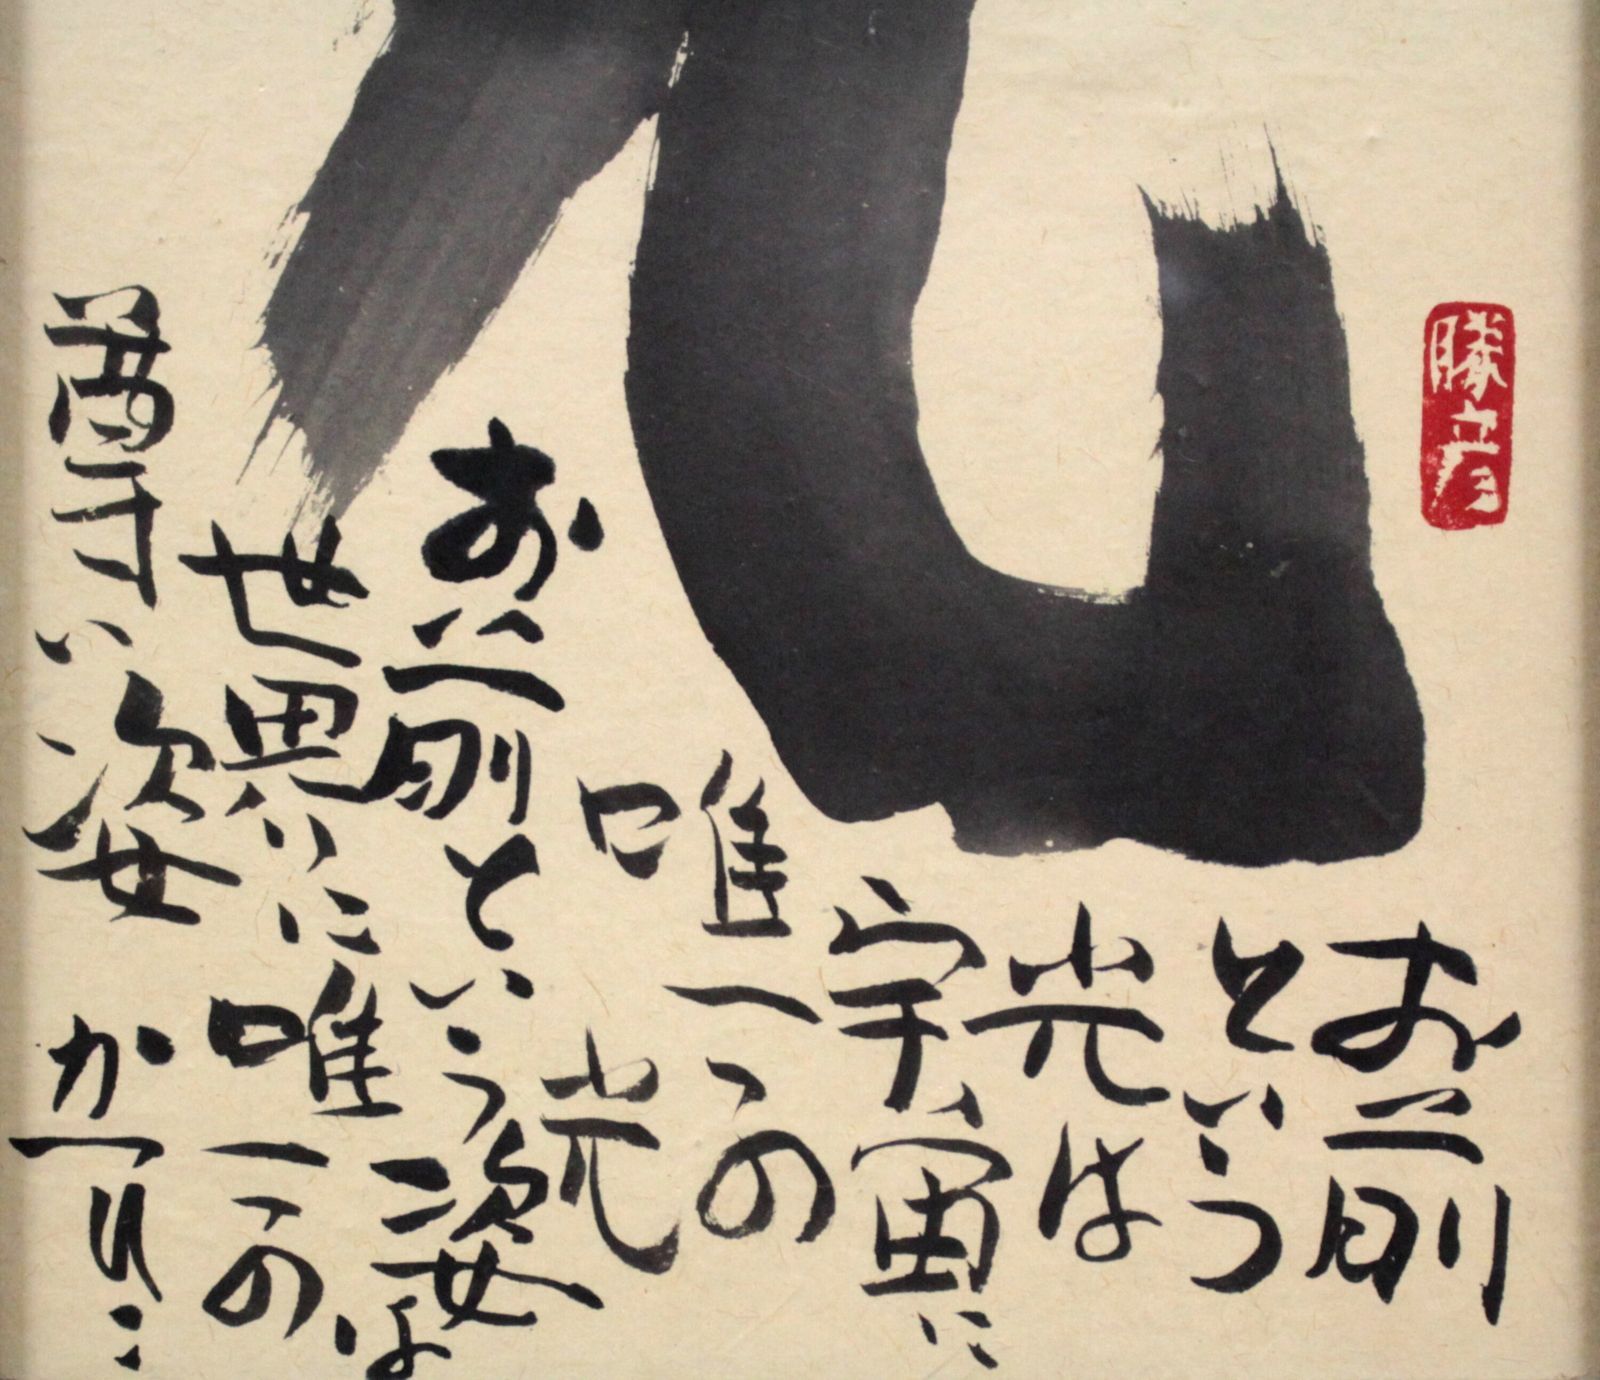 お前
という
光は
宇宙に
唯一つの
光
お前という姿は
世界に唯一つの
尊い姿
かつひこ
勝彦